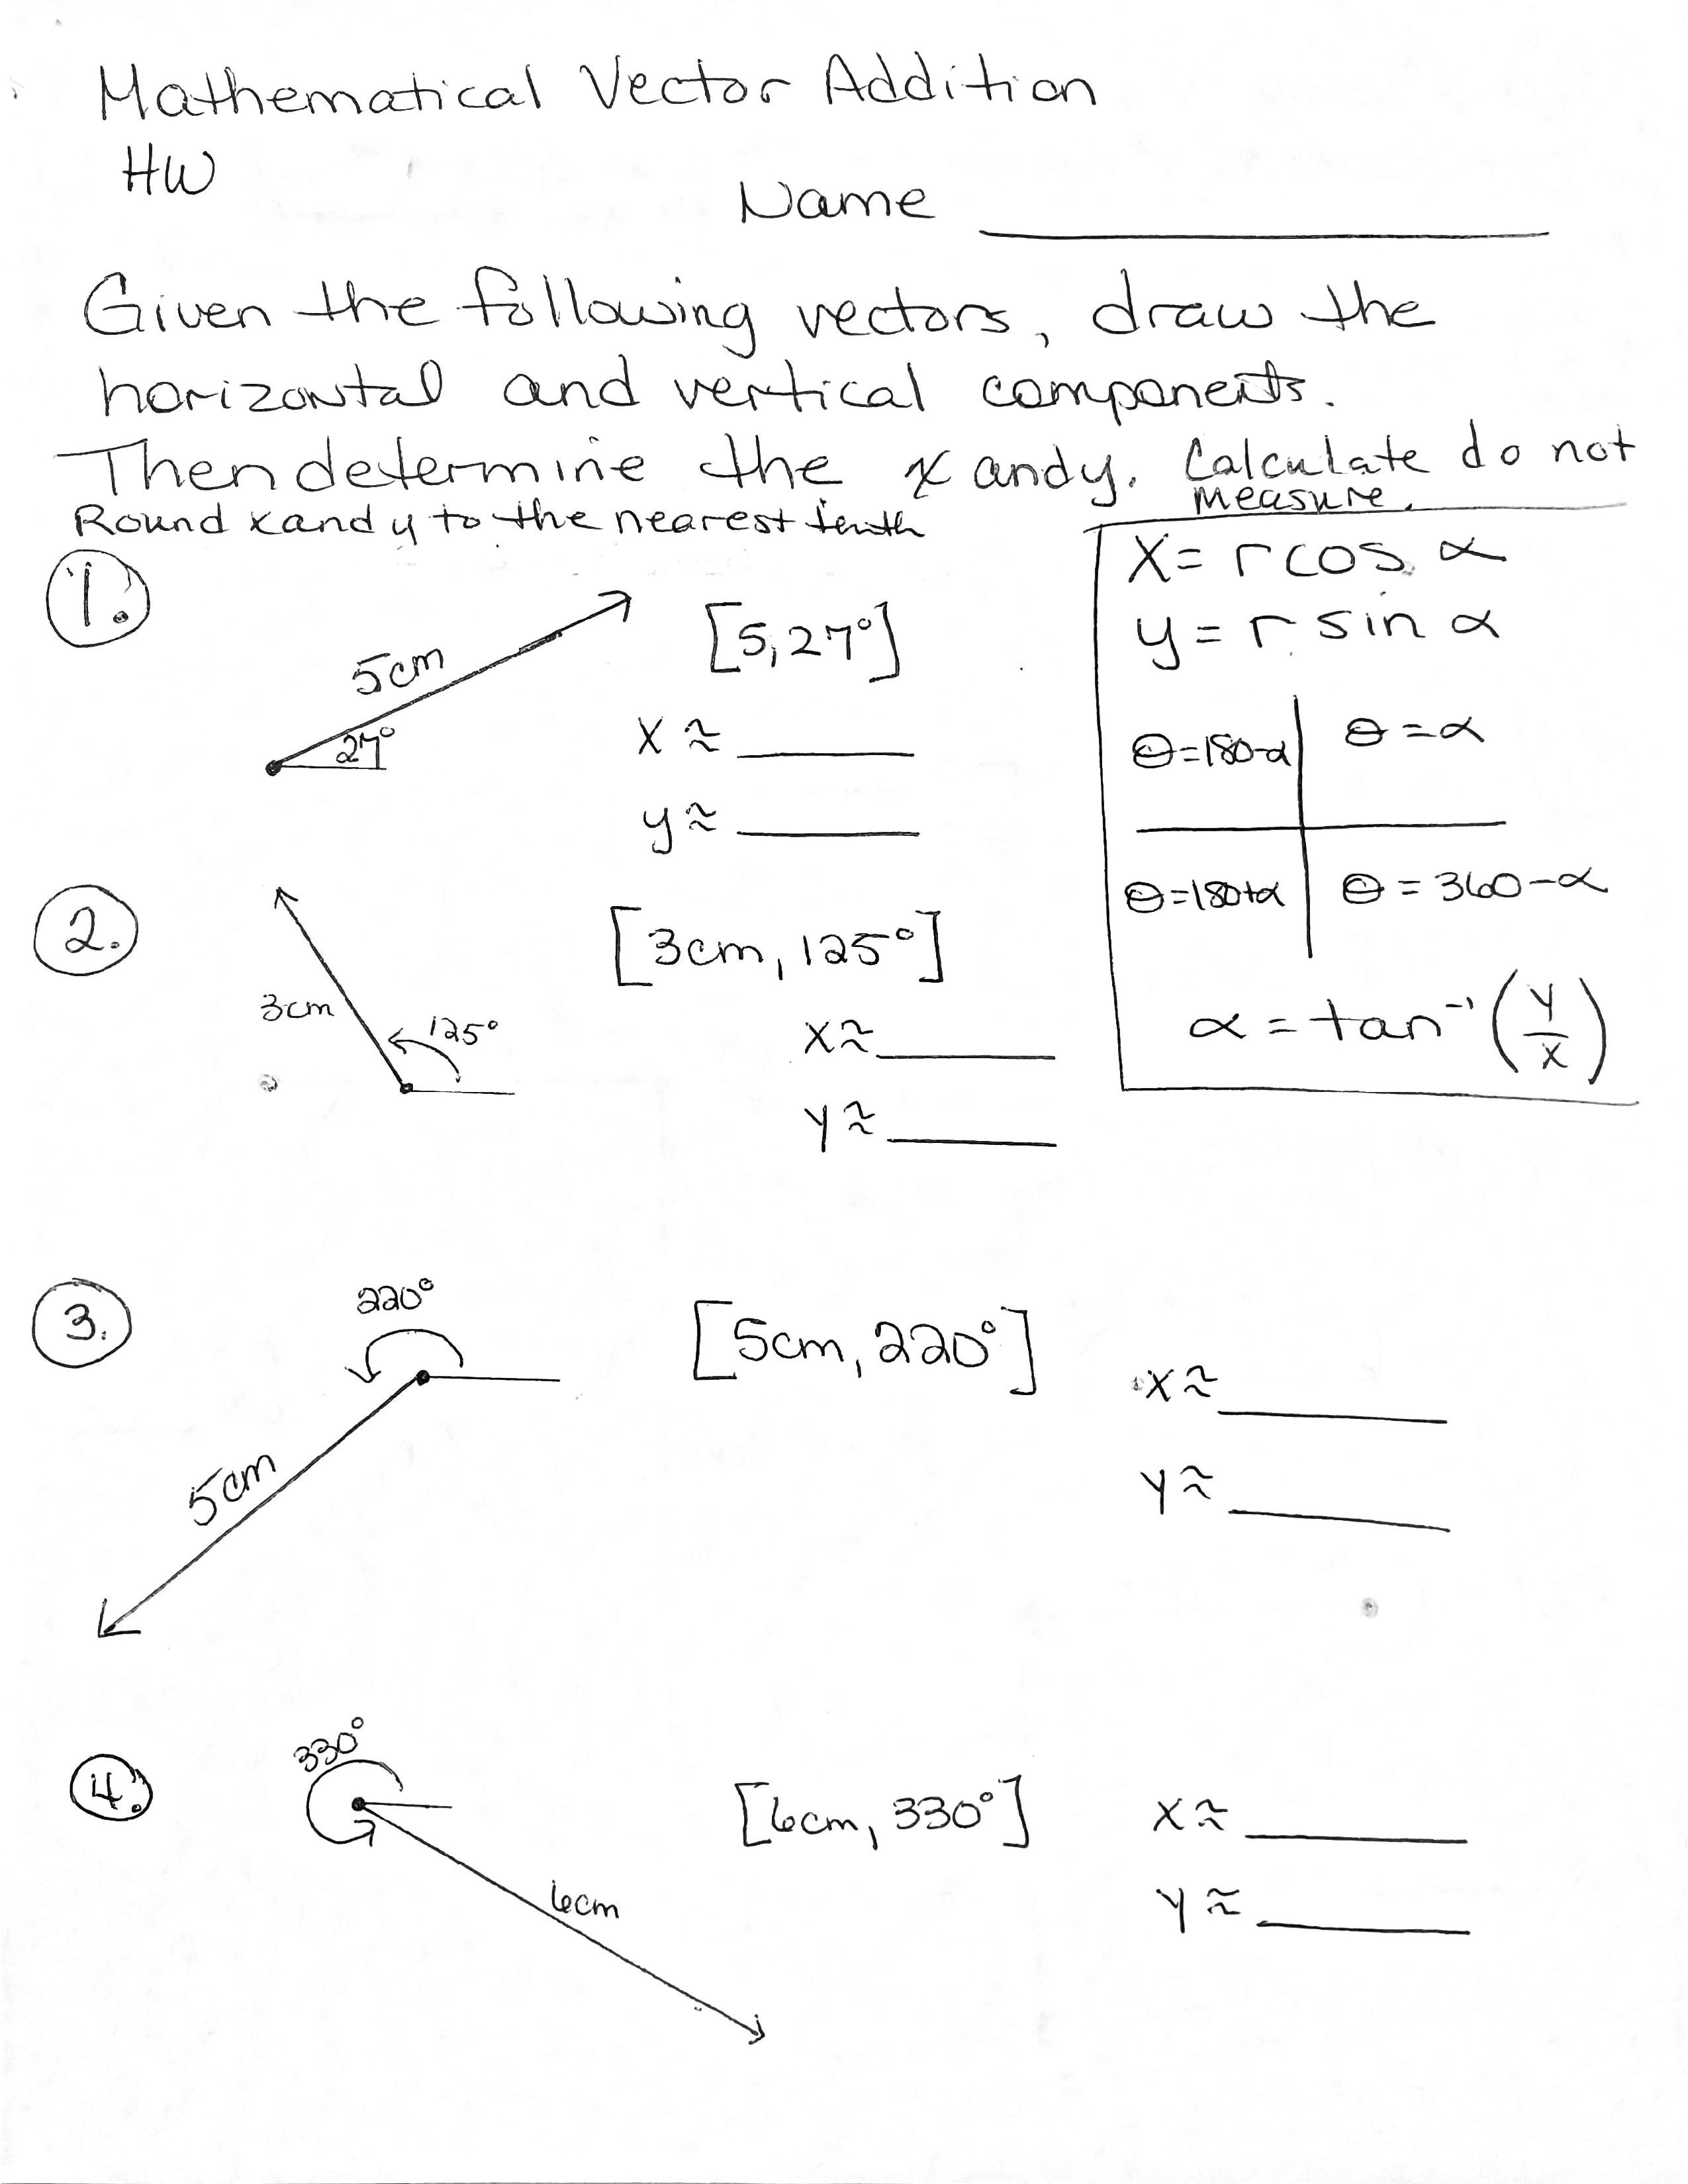 Mathematical Vector Addition
HW
Name
Given the following vectors, draw the
horizontal and vertical components.
Then determine the x and y. Calculate do not
measure.
Round x and y to the nearest tenth
x = r cos α
y = r sin α
θ=180-α
θ=α
θ=180+α
θ = 360-α
α = tan⁻¹ (y/x)
1.
5cm
27°
[5, 27°]
x ≈
y ≈
2.
3cm
125°
[3cm, 125°]
x ≈
y ≈
3.
220°
5cm
[5cm, 220°]
x ≈
y ≈
4.
330°
6cm
[6cm, 330°]
x ≈
y ≈